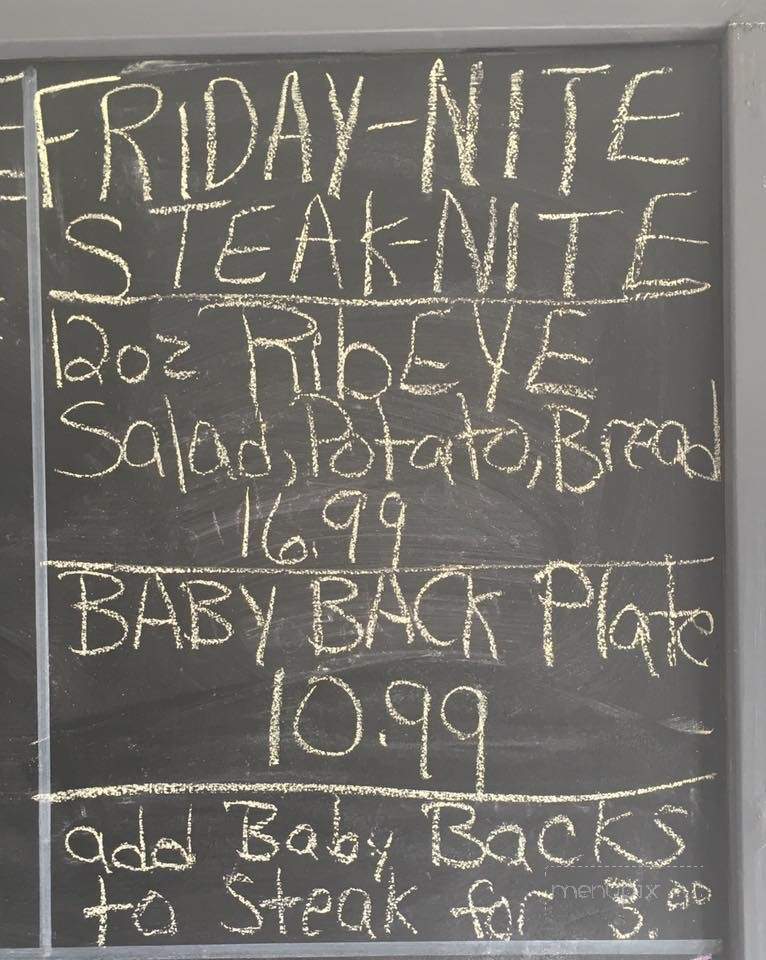 FRIDAY-NITE
STEAK-NITE
12oz RibEYE
Salad, Potato, Bread
16.99
BABY BACK Plate
10.99
add Baby Backs
to Steak for 3.00
menupix